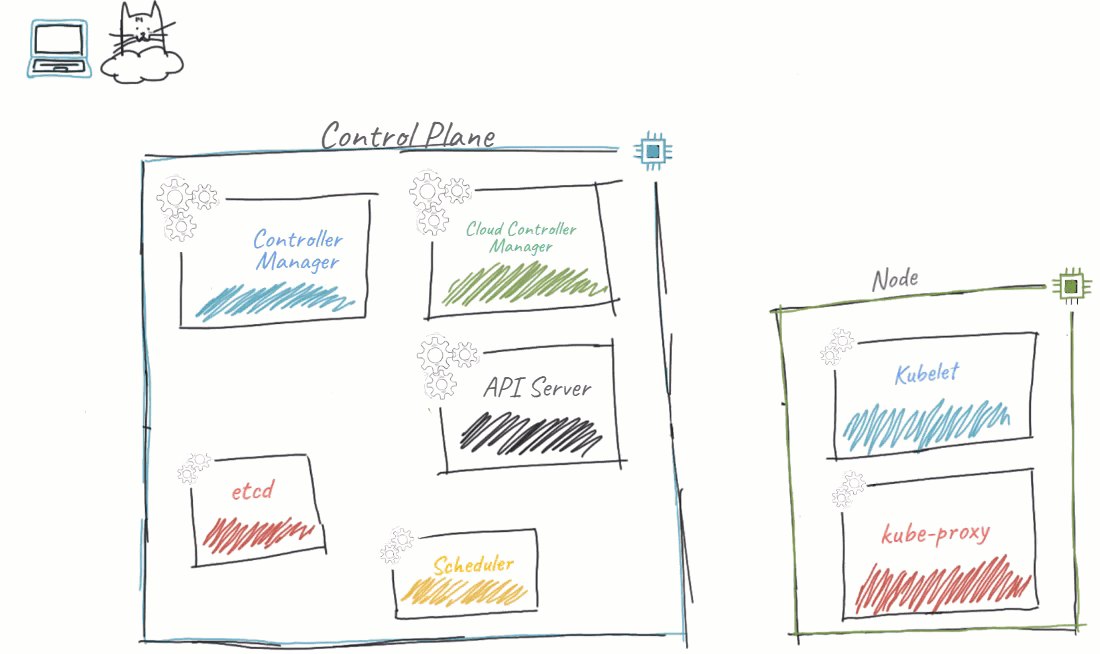 Control Plane
Controller
Manager
Cloud Controller
Manager
API Server
etcd
Scheduler
Node
Kubelet
kube-proxy